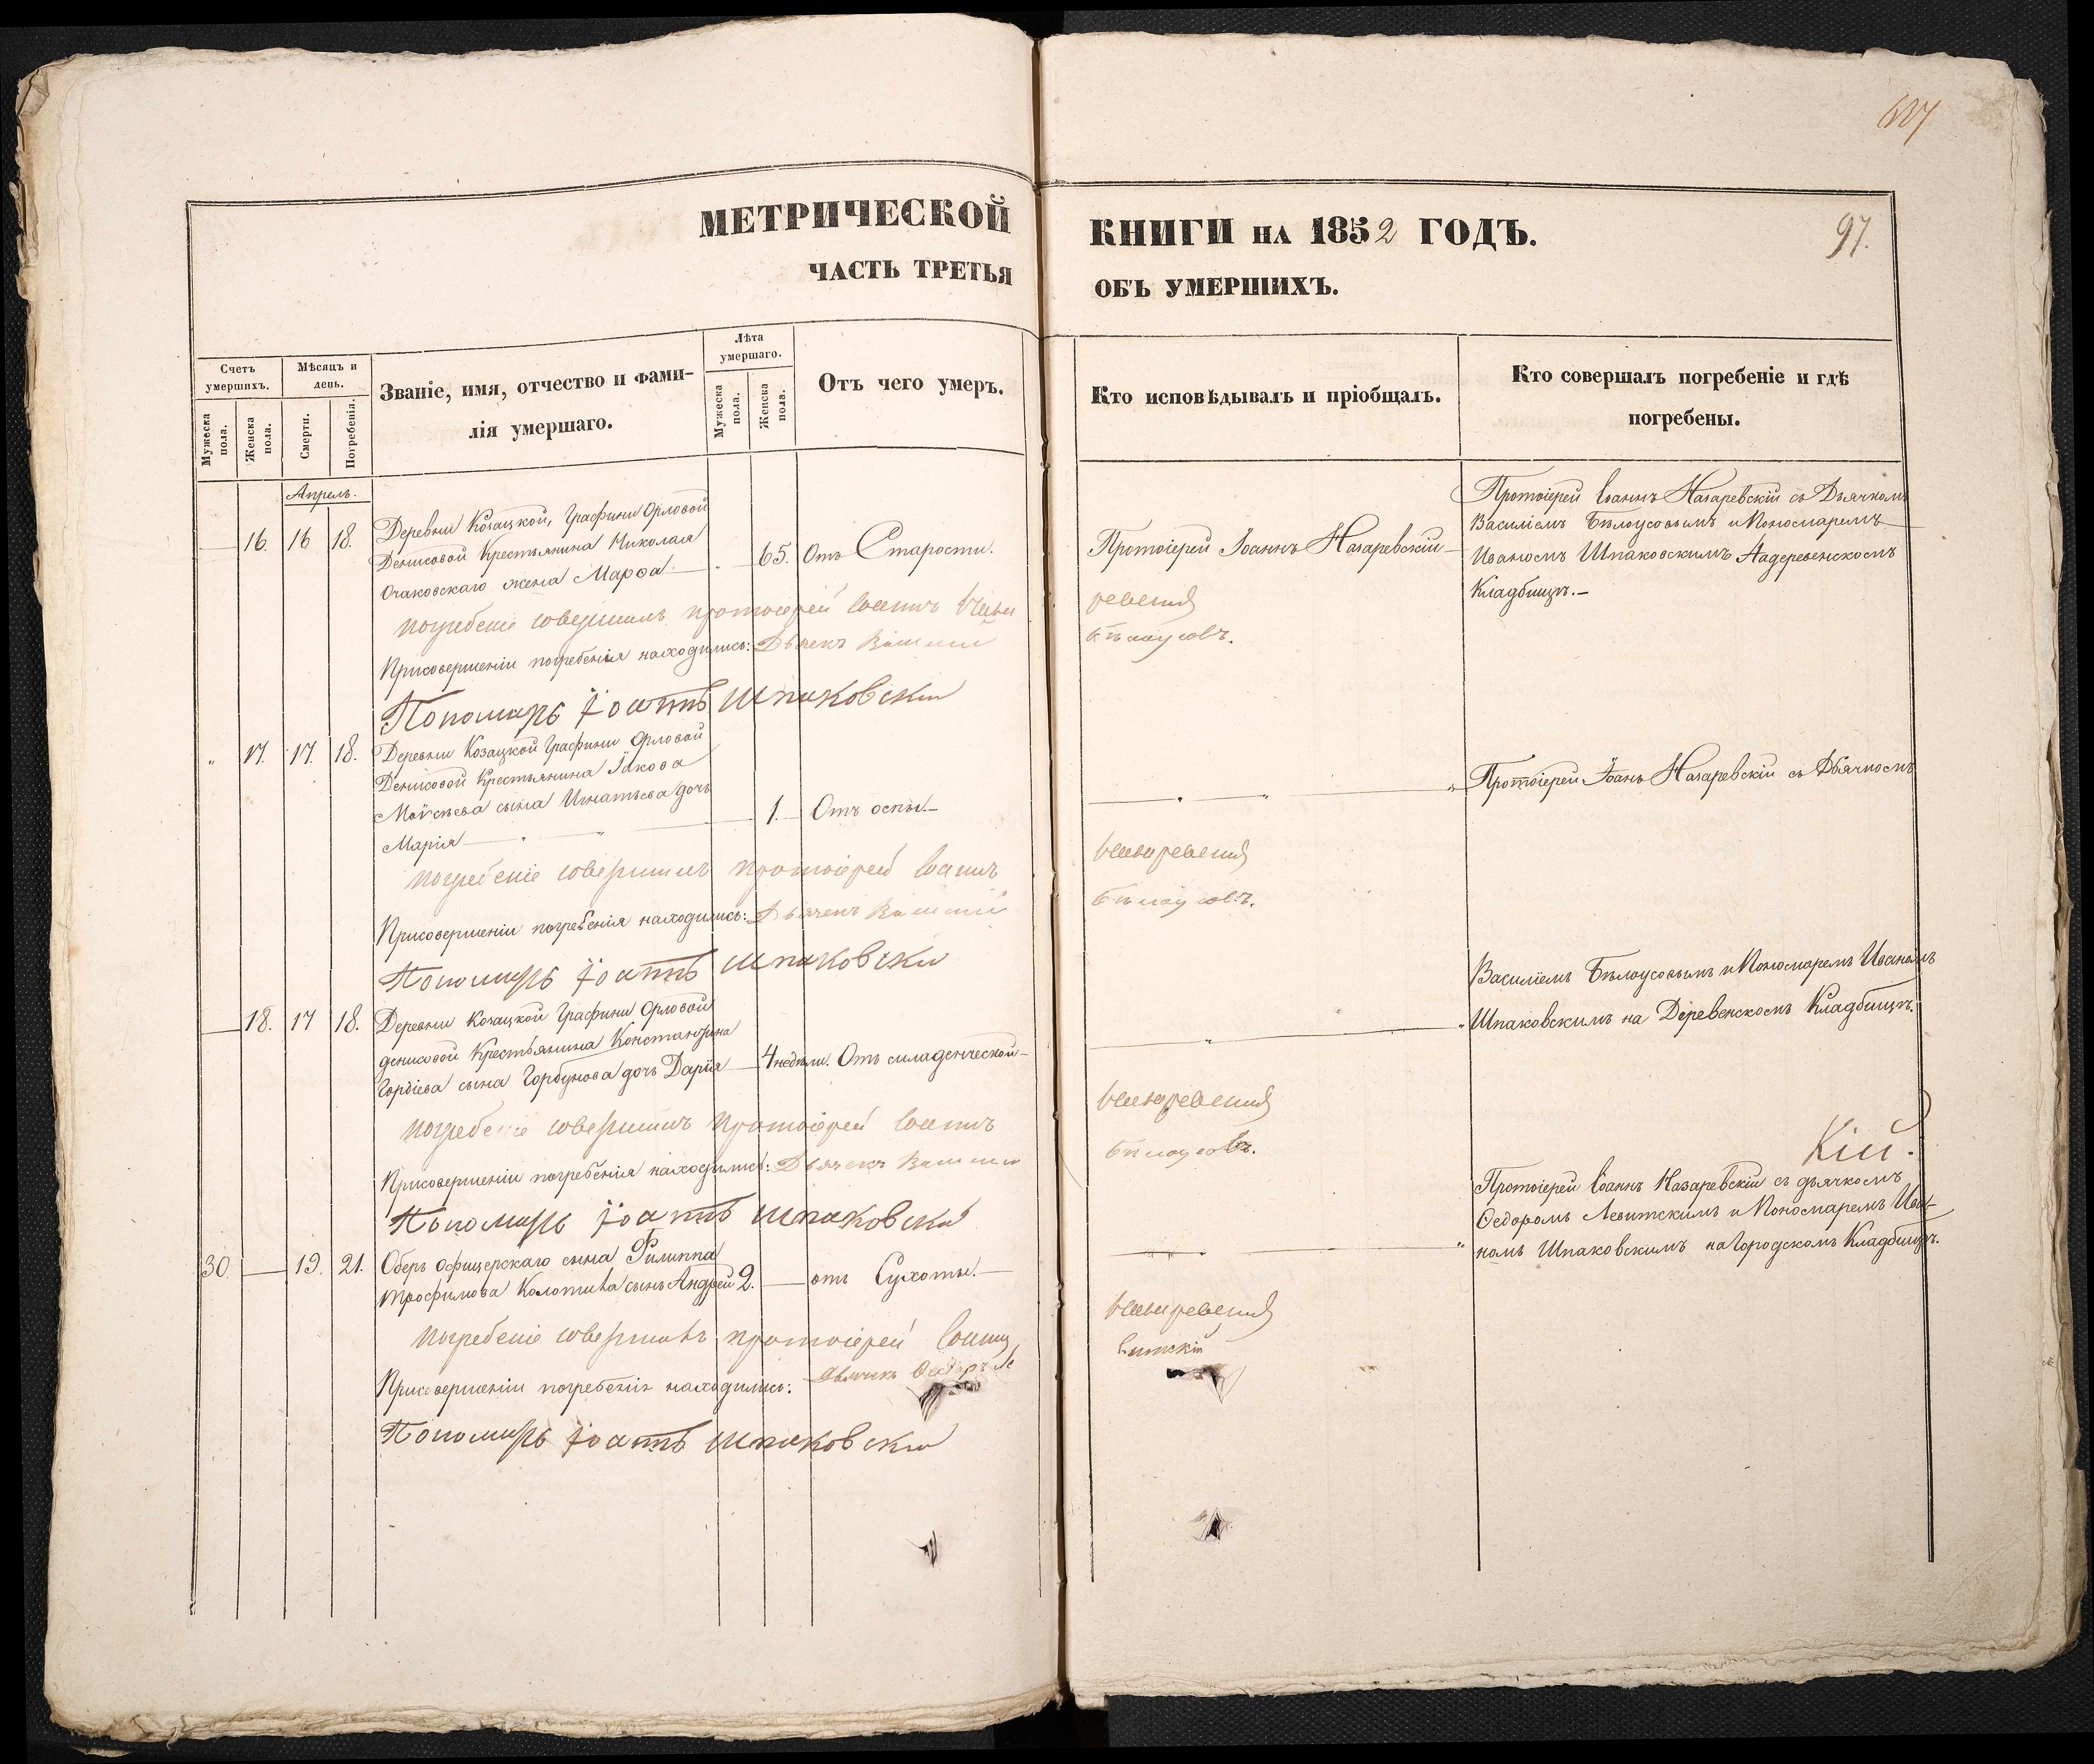 97.
МЕТРИЧЕСКОЙ КНИГИ НА 1852 ГОДЪ.
ЧАСТЬ ТРЕТЬЯ ОБЪ УМЕРШИХЪ.
Счетъ умершихъ.
Мужеска пола.
Женска пола.
Мѣсяцъ и день.
Смерти.
Погребенія.
Званіе, имя, отчество и фами-
лія умершаго.
Лѣта умершаго.
Мужеска пола.
Женска пола.
Отъ чего умеръ.
Кто исповѣдывалъ и пріобщалъ.
Кто совершалъ погребеніе и гдѣ
погребены.
Апрель.
16. 16 18.
Деревни Козацкой, Графини Орловой
Денисовой Крестьянина Николая
Очаковскаго жена Марѳа
65. Отъ Старости.
Протоіерей Іоаннъ Назаревскій
Протоіерей Іоаннъ Назаревскій съ Дьячкомъ
Василіемъ Бѣлоусовымъ и Пономаремъ
Иваномъ Шпаковскимъ На деревенскомъ
Кладбищѣ.
погребеніе совершилъ протоіерей Іоаннъ Наза
ревскій
При совершеніи погребенія находились: Дьячекъ Василій
Бѣлоусовъ.
Пономарь Іоаннъ Шпаковскій
17. 17. 18.
Деревни Козацкой Графини Орловой
Денисовой Крестьянина Іакова
Моѵсѣева сына Игнатьева дочь
Марія
1. Отъ оспы.
Протоіерей Іоанъ Назаревскій съ Дьячкомъ
погребеніе совершилъ протоіерей Іоаннъ
Назаревскій
При совершеніи погребенія находились: Дьячекъ Василій
Бѣлоусовъ.
Пономарь Іоаннъ Шпаковскій
Василіемъ Бѣлоусовымъ и Пономаремъ Иваномъ
Шпаковскимъ на Деревенскомъ Кладбищѣ.
18. 17 18.
Деревни Козацкой Графини Орловой
денисовой Крестьянина Константина
Гордіева сына Горбунова дочь Дарія
4 недѣли. Отъ младенческой
погребеніе совершилъ протоіерей Іоаннъ
Назаревскій
При совершеніи погребенія находились: Дьячекъ Василій
Бѣлоусовъ.
Пономарь Іоаннъ Шпаковскій
Кій.
30. 19. 21.
Оберъ офицерскаго сына Филиппа
Трофимова сынъ Андрей 2.
отъ Сухоты.
Протоіерей Іоаннъ Назаревскій съ дьячкомъ
Ѳедоромъ Левитскимъ и Пономаремъ Ива-
номъ Шпаковскимъ на Городскомъ Кладбищѣ.
погребеніе совершилъ протоіерей Іоаннъ
Назаревскій
При совершеніи погребенія находились: дьячекъ Ѳедоръ Ле
витскій
Пономарь Іоаннъ Шпаковскій